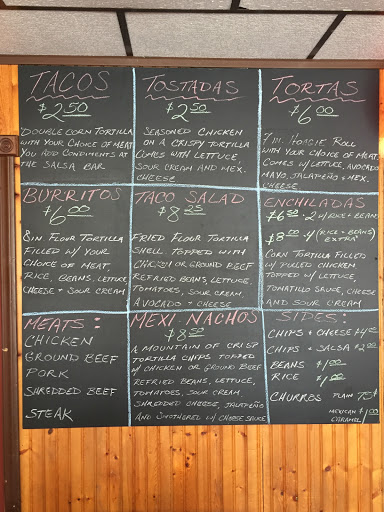 TACOS
$2.50
DOUBLE CORN TORTILLA
WITH YOUR CHOICE OF MEAT
YOU ADD CONDIMENTS AT
THE SALSA BAR
TOSTADAS
$2.50
SEASONED CHICKEN
ON A CRISPY TORTILLA
COMES WITH LETTUCE,
SOUR CREAM AND MEX.
CHEESE
TORTAS
$6.00
7 IN. HOAGIE ROLL
WITH YOUR CHOICE OF MEAT.
COMES W/ LETTUCE, AVOCADO
MAYO, JALAPEÑO & MEX.
CHEESE
BURRITOS
$6.00
8 IN FLOUR TORTILLA
FILLED W/ YOUR
CHOICE OF MEAT,
RICE, BEANS, LETTUCE
CHEESE & SOUR CREAM
TACO SALAD
$8.25
FRIED FLOUR TORTILLA
SHELL TOPPED WITH
CHICKEN OR GROUND BEEF
REFRIED BEANS, LETTUCE,
TOMATOES, SOUR CREAM,
AVOCADO & CHEESE
ENCHILADAS
$6.50 - 2 W/ RICE & BEANS
$8.00 - 4 (RICE & BEANS)
EXTRA
CORN TORTILLA FILLED
W/ PULLED CHICKEN
TOPPED W/ LETTUCE
TOMATILLO SAUCE, CHEESE
AND SOUR CREAM
MEATS:
CHICKEN
GROUND BEEF
PORK
SHREDDED BEEF
STEAK
MEXI NACHOS
$8.00
A MOUNTAIN OF CRISP
TORTILLA CHIPS TOPPED
W/ CHICKEN OR GROUND BEEF
REFRIED BEANS, LETTUCE,
TOMATOES, SOUR CREAM
SHREDDED CHEESE, JALAPEÑO
AND SMOTHERED W/ CHEESE SAUCE
SIDES:
CHIPS & CHEESE
CHIPS & SALSA $2.00
BEANS $1.00
RICE $1.00
CHURROS PLAIN 75¢
MEXICAN $1.00
CARAMEL